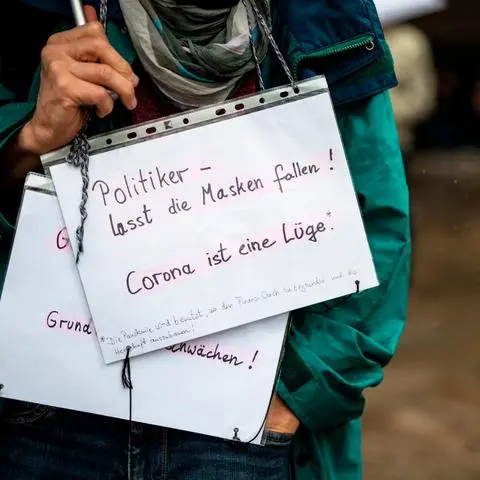 Politiker -
lasst die Masken fallen!
Corona ist eine Lüge!*
*Die Pandemie wird benutzt, um den Finanz-Crash zu begründen und die
Herrschaft auszubauen!
G
Grund
schwächen!